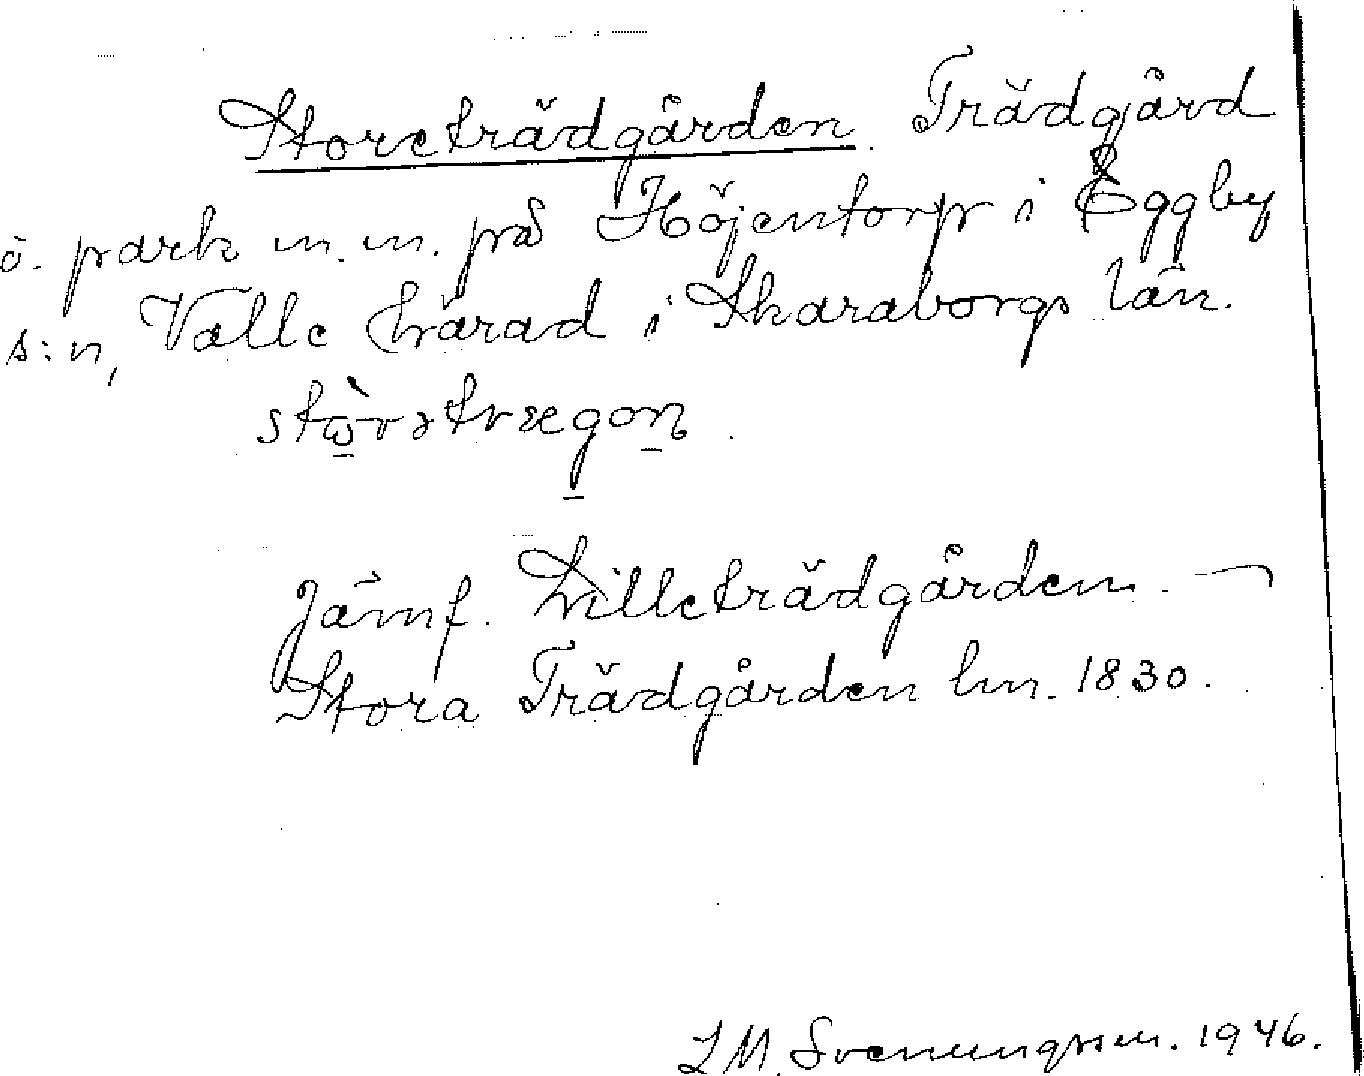 Storeträdgården. Trädgård
o. park m.m. på Höjentorp i Eggby
s:n, Valle härad i Skaraborgs län.
Jämf. Lilleträdgården. —
Stora Trädgården lm. 1830.
L M. Svenungsson. 1946.